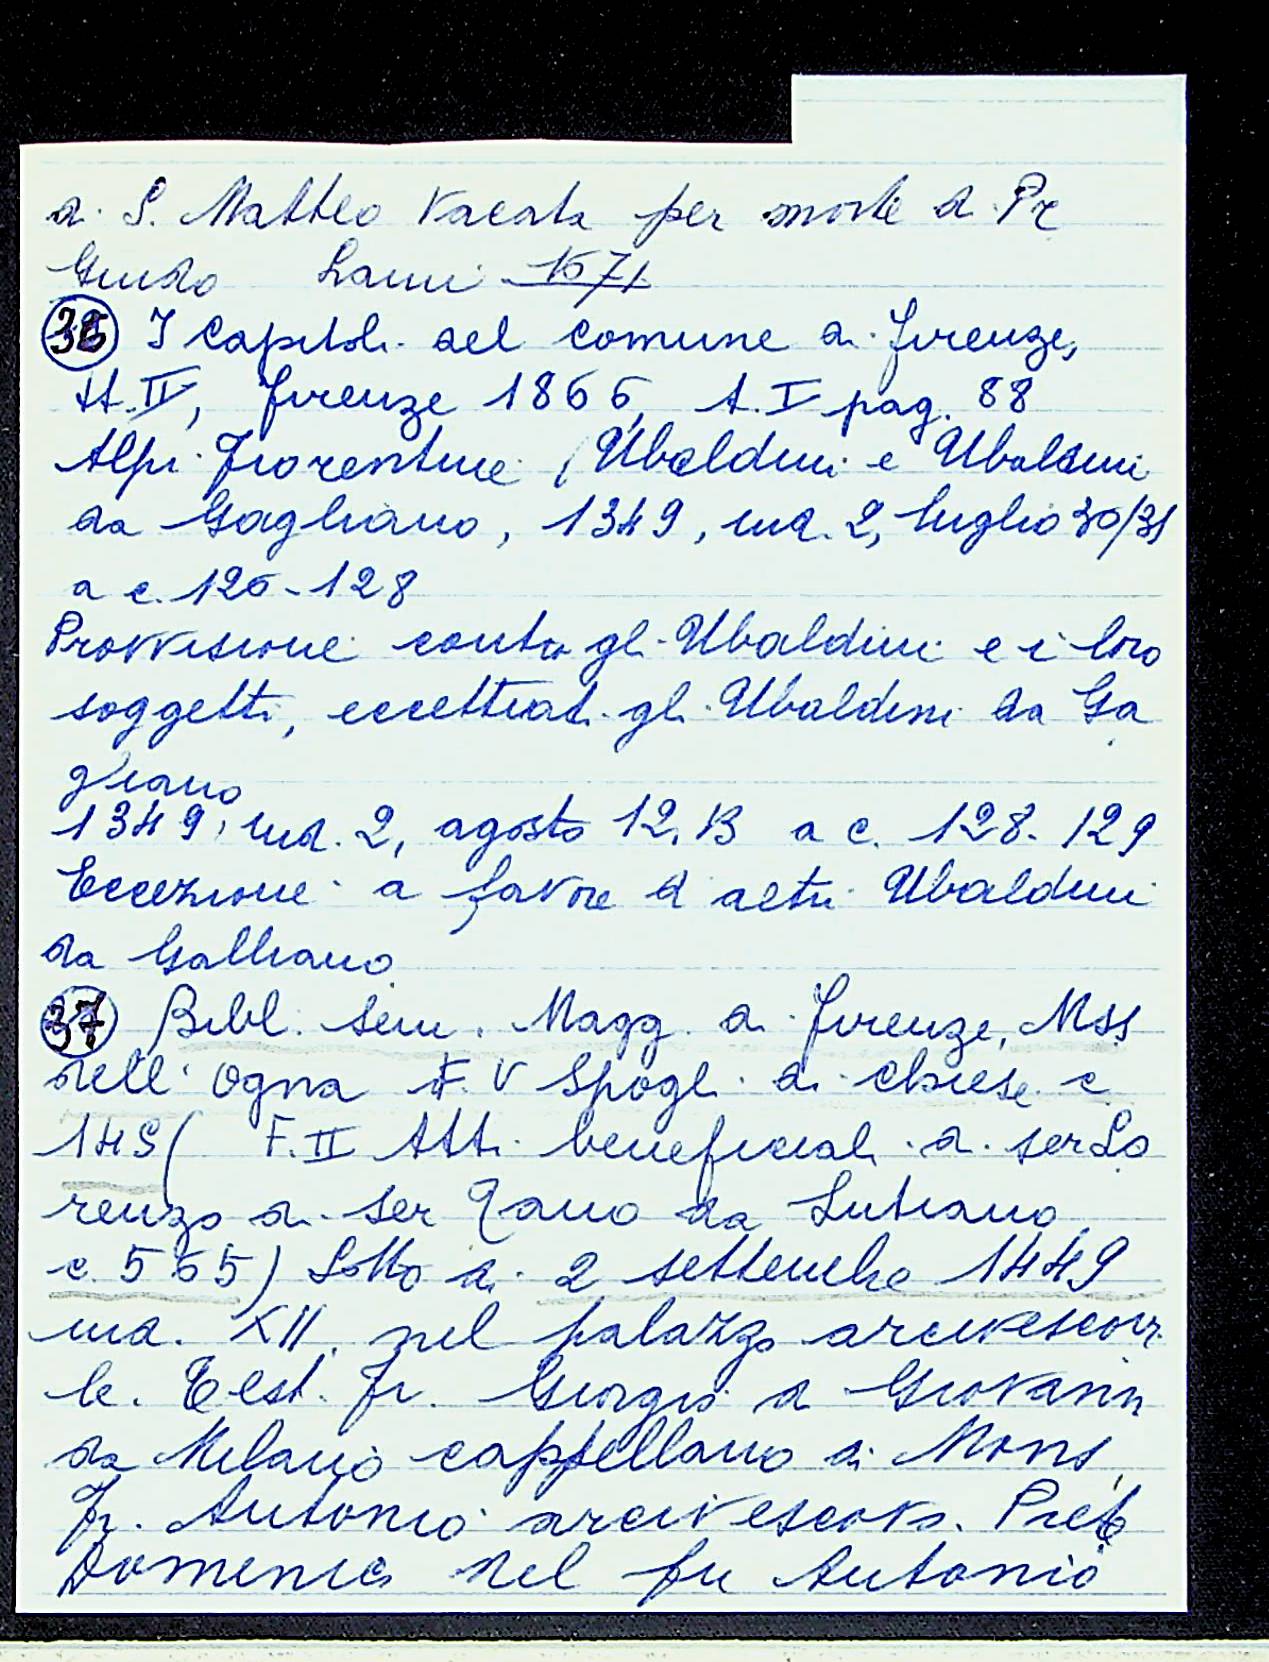 di S. Matteo vacata per morte di Pr
Guido Lami 1571
36 I Capitoli del comune di Firenze,
tt. IV, Firenze 1866, t. I pag. 88
Alpi Fiorentine, Ubaldini e Ubaldini
da Gagliano, 1349, ind. 2, luglio 30/31
a c. 126-128
Provvisione contro gli Ubaldini e i loro
soggetti, eccettuati gli Ubaldini da Ga
gliano
1349, ind. 2, agosto 12, 13 a c. 128-129
Eccezione a favore d altri Ubaldini
da Galliano
37 Bibl. Sem. Magg. di Firenze, Mss
dell' Ogna F. V Spogli di chiese c
149 ( F. II Atti beneficiali di ser Lo
renzo di ser Zano da Lutiano
c. 565) Sotto di 2 settembre 1449
ind. XII, nel palazzo arcivescovi
le. Test. Fr. Giorgio di Giovanni
da Milano cappellano di Mons.
Fr. Antonio arcivescovo. Prete
Domenico del fu Antonio